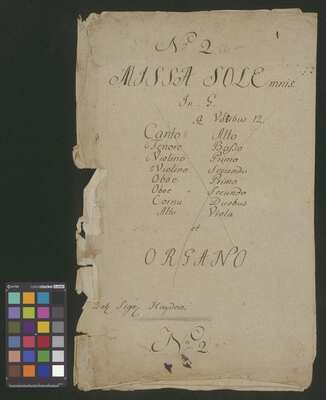 No 2
MISSA SOLEmnis.
In G.
a Vocibus 12.
Canto Alto
Tenore Basso
Violino Primo
Violino Secundo
Oboe Primo
Oboe Secundo
Cornu Duobus
Alto Viola
et
ORGANO
Del Sigre Haydn.
No 2